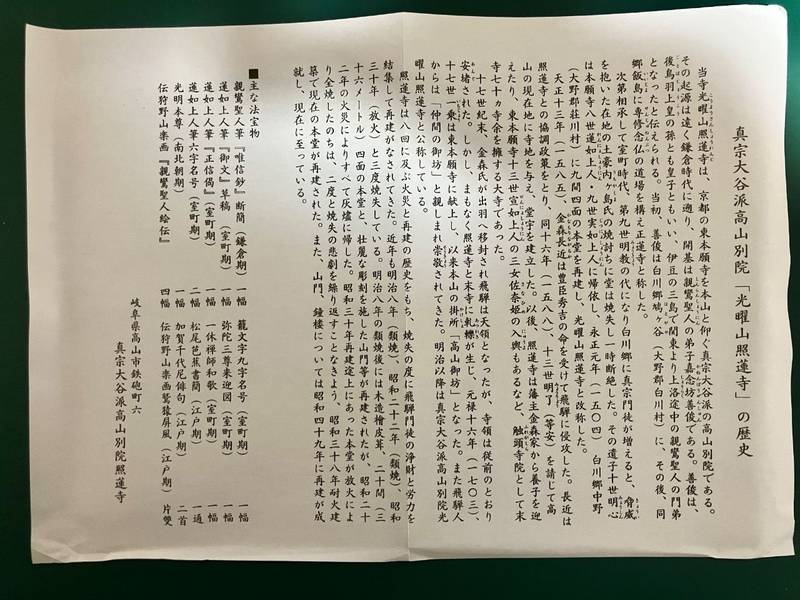 真宗大谷派高山別院「光曜山照蓮寺」の歴史
当寺光曜山照蓮寺は、京都の東本願寺を本山と仰ぐ真宗大谷派の高山別院である。
その起源は遠く鎌倉時代に遡り、開基は親鸞聖人の弟子嘉念坊善俊である。善俊は、
後鳥羽上皇の孫とも皇子ともいい、伊豆の三島で関東より上洛途中の親鸞聖人の門弟
となったと伝えられる。当初、善俊は白川郷鳩ヶ谷（大野郡白川村）に、その後、同
郷飯島に専修念仏の道場を構え正蓮寺と称した。
次第相承して室町時代、第九世明教の代になり白川郷に真宗門徒が増えると、脅威
を抱いた在地の土豪内ヶ島氏の焼討ちに堂は焼失し一時断絶した。その遺子十世明心
は本願寺八世蓮如上人・九世実如上人に帰依し、永正元年（一五〇四）白川郷中野
（大野郡荘川村）に九間四面の本堂を再建し、光曜山照蓮寺と改称した。
天正十三年（一五八五）、金森長近は豊臣秀吉の命を受けて飛騨に侵攻した。長近は
照蓮寺との協調政策をとり、同十六年（一五八八）、十三世明了（等安）を請じて高
山の現在地に寺地を与え、堂宇を建立した。以後、照蓮寺は藩主金森家から養子を迎
えたり、東本願寺十三世宣如上人の三女佐奈姫の入輿もあるなど、触頭寺院として末
寺七十ヵ寺余を擁する大寺であった。
十七世紀末、金森氏が出羽へ移封され飛騨は天領となったが、寺領は従前のとおり
安堵された。しかし、まもなく照蓮寺と末寺に軋轢が生じ、元禄十六年（一七〇三）、
十七世一乗は東本願寺に献上し、以来本山の掛所「高山御坊」となった。また飛騨人
からは「仲間の御坊」と親しまれ崇敬されてきた。明治以降は真宗大谷派高山別院光
曜山照蓮寺と公称している。
照蓮寺は八回に及ぶ火災と再建の歴史をもち、焼失の度に飛騨門徒の浄財と労力を
結集して再建がなされてきた。近年も明治八年（類焼）、昭和二十二年（類焼）、昭和
三十年（放火）と三度焼失している。明治八年の類焼後には木造檜皮葺、二十間（三
十六メートル）四面の本堂と、壮麗な彫刻を施した山門等が再建されたが、昭和二十
二年の火災によりすべて灰燼に帰した。昭和三十年再建途上にあった本堂が放火によ
り全焼したのちは、二度と焼失の悲劇を繰り返すことなきよう、昭和三十八年耐火建
築で現在の本堂が再建された。また、山門、鐘楼については昭和四十九年に再建が成
就し、現在に至っている。
■主な法宝物
親鸞聖人筆『唯信鈔』断簡（鎌倉期）一幅　籠文字九字名号（室町期）一幅
蓮如上人筆『御文』草稿（室町期）一幅　弥陀三尊来迎図（室町期）一幅
蓮如上人筆『正信偈』（室町期）一幅　一休禅師和歌（室町期）一幅
蓮如上人筆六字名号（室町期）二幅　松尾芭蕉書簡（江戸期）一通
光明本尊（南北朝期）一幅　加賀千代尼俳句（江戸期）二首
伝狩野山楽画『親鸞聖人絵伝』四幅　伝狩野山楽画鷲猿屏風（江戸期）片雙
岐阜県高山市鉄砲町六
真宗大谷派高山別院照蓮寺